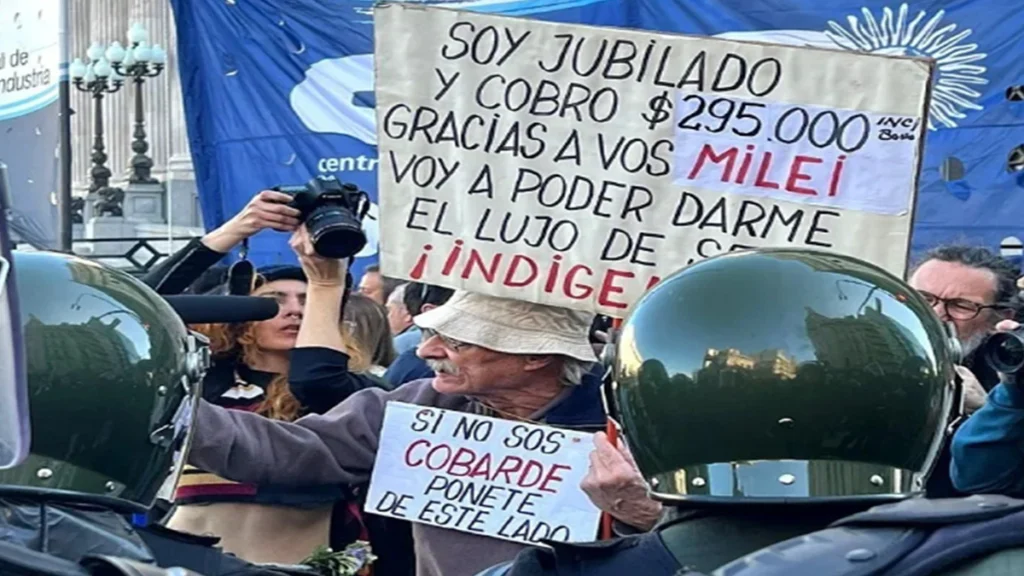 SOY JUBILADO
Y COBRO $295.000 INCL
BONO
GRACIAS A VOS MILEI
VOY A PODER DARME
EL LUJO DE
¡INDIGE
SI NO SOS
COBARDE
PONETE
DE ESTE LADO
l de
ndustria
centr